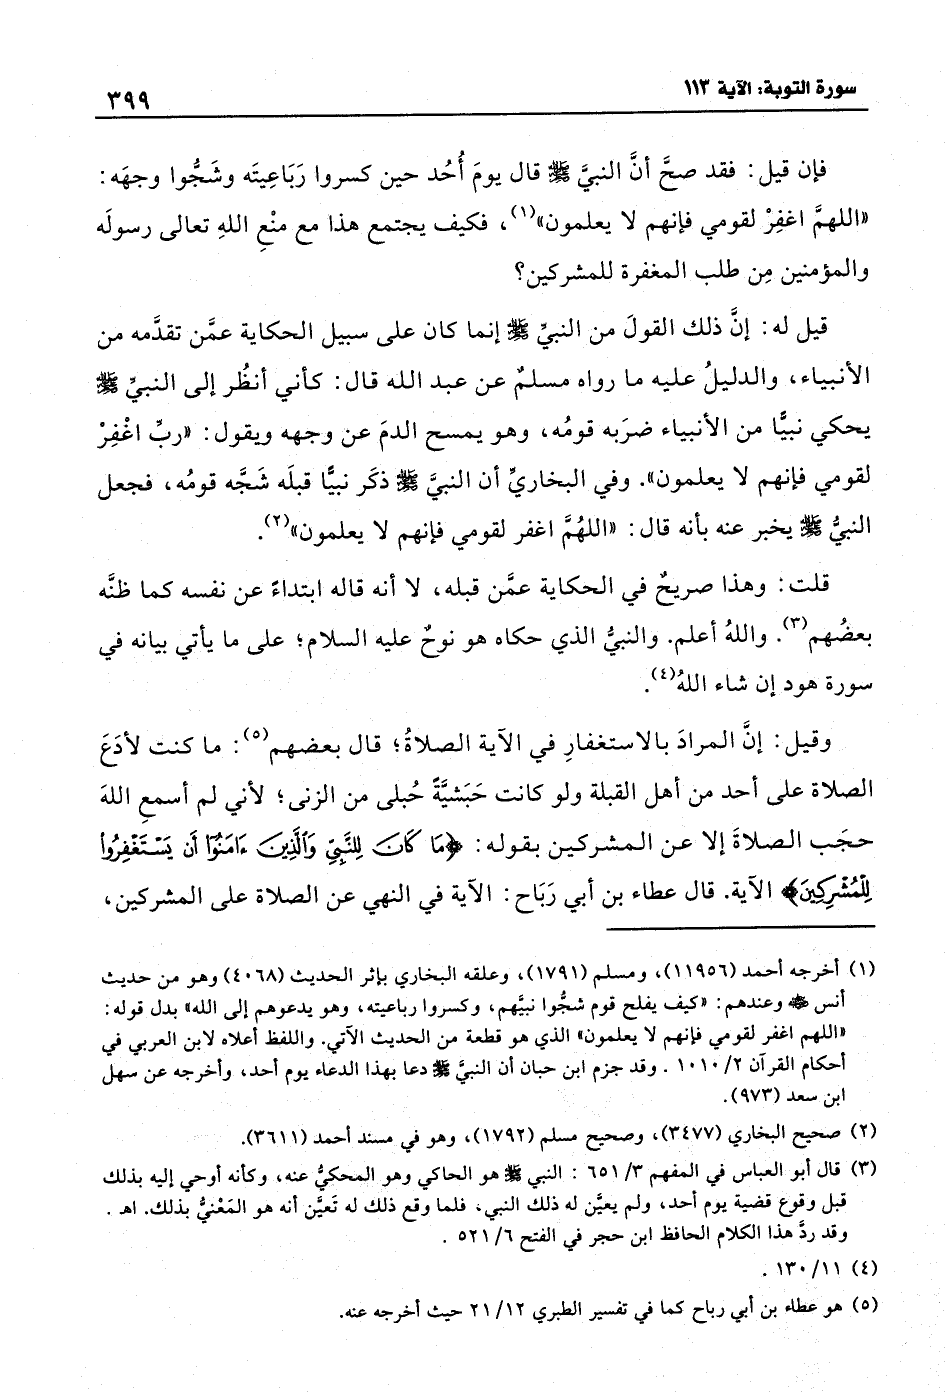 سورة التوبة: الآية ١١٣
٣٩٩
فإن قيل: فقد صحَّ أنَّ النبيَّ ﷺ قال يومَ أُحُد حين كسروا رَبَاعِيتَه وشَجُّوا وجهَه:
«اللهمَّ اغفِرْ لقومي فإنهم لا يعلمون»(١)، فكيف يجتمع هذا مع منْعِ اللهِ تعالى رسولَه
والمؤمنين مِن طلب المغفرة للمشركين؟
قيل له: إنَّ ذلك القولَ من النبيِّ ﷺ إنما كان على سبيل الحكاية عمَّن تقدَّمه من
الأنبياء، والدليلُ عليه ما رواه مسلمٌ عن عبد الله قال: كأني أنظُر إلى النبيِّ ﷺ
يحكي نبيًّا من الأنبياء ضرَبه قومُه، وهو يمسح الدمَ عن وجهه ويقول: «ربِّ اغْفِرْ
لقومي فإنهم لا يعلمون». وفي البخاريِّ أن النبيَّ ﷺ ذكَر نبيًّا قبلَه شَجَّه قومُه، فجعل
النبيُّ ﷺ يخبر عنه بأنه قال: «اللهُمَّ اغفر لقومي فإنهم لا يعلمون»(٢).
قلت: وهذا صريحٌ في الحكاية عمَّن قبله، لا أنه قاله ابتداءً عن نفسه كما ظنَّه
بعضُهم(٣). واللهُ أعلم. والنبيُّ الذي حكاه هو نوحٌ عليه السلام؛ على ما يأتي بيانه في
سورة هود إن شاء اللهُ(٤).
وقيل: إنَّ المرادَ بالاستغفارِ في الآية الصلاةُ؛ قال بعضهم(٥): ما كنت لأدَعَ
الصلاة على أحد من أهل القبلة ولو كانت حَبَشيَّةً حُبلى من الزنى؛ لأني لم أسمعِ اللهَ
حجَب الصلاةَ إلا عن المشركين بقوله: ﴿مَا كَانَ لِلنَّبِيِّ وَالَّذِينَ ءَامَنُوٓا أَن يَسْتَغْفِرُوا
لِلْمُشْرِكِينَ﴾ الآية. قال عطاء بن أبي رَبَاح: الآية في النهي عن الصلاة على المشركين،
(١) أخرجه أحمد (١١٩٥٦)، ومسلم (١٧٩١)، وعلقه البخاري بإثر الحديث (٤٠٦٨) وهو من حديث
أنس ﷺ وعندهم: «كيف يفلح قوم شجُّوا نبيَّهم، وكسروا رباعيته، وهو يدعوهم إلى الله» بدل قوله:
«اللهم اغفر لقومي فإنهم لا يعلمون» الذي هو قطعة من الحديث الآتي. واللفظ أعلاه لابن العربي في
أحكام القرآن ١٠١٠/٢ . وقد جزم ابن حبان أن النبيَّ ﷺ دعا بهذا الدعاء يوم أحد، وأخرجه عن سهل
ابن سعد (٩٧٣).
(٢) صحيح البخاري (٣٤٧٧)، وصحيح مسلم (١٧٩٢)، وهو في مسند أحمد (٣٦١١).
(٣) قال أبو العباس في المفهم ٦٥١/٣ : النبي ﷺ هو الحاكي وهو المحكيُّ عنه، وكأنه أوحي إليه بذلك
قبل وقوع قضية يوم أحد، ولم يعيَّن له ذلك النبي، فلما وقع ذلك له تَعيَّن أنه هو المَعْنيُّ بذلك. اهـ .
وقد ردَّ هذا الكلام الحافظ ابن حجر في الفتح ٥٢١/٦ .
(٤) ١٣٠/١١ .
(٥) هو عطاء بن أبي رباح كما في تفسير الطبري ٢١/١٢ حيث أخرجه عنه.